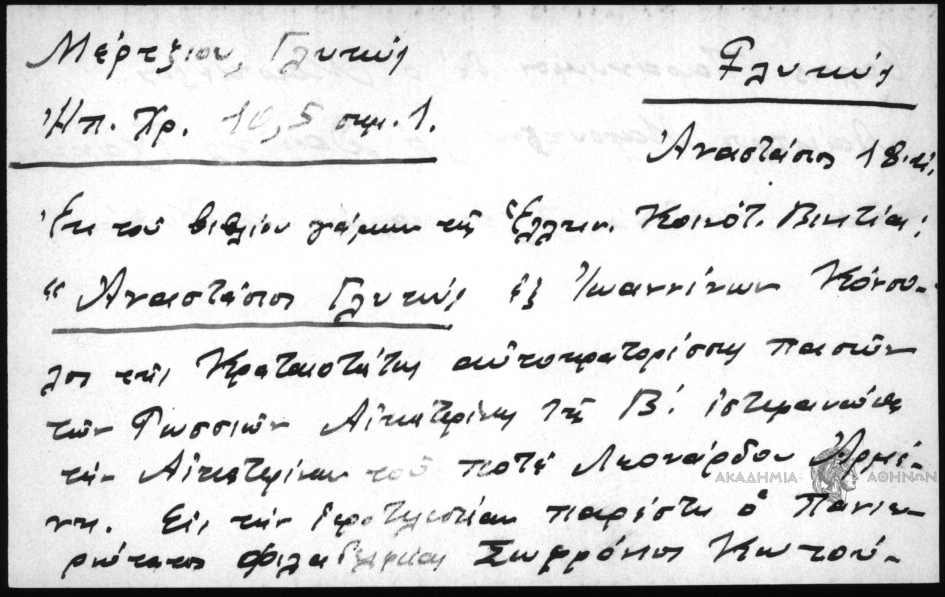 Μέρτζιου, Γλυκύς
Γλυκύς
Ἠπ. Χρ. 10,5 σημ. 1.
Ἀναστάσιος 18. αἰ.
Ἐκ τοῦ βιβλίου γάμων τῆς Ἑλλην. Κοινότ. Βενετίας:
"Ἀναστάσιος Γλυκύς ἐξ Ἰωαννίνων Κόνσο-
λος τῆς Κραταιοτάτης αὐτοκρατορίσσης πασῶν
τῶν Ρωσσιῶν Αἰκατερίνης τῆς Β΄. ἐστεφανώθη
τὴν Αἰκατερίναν τοῦ ποτὲ Λεονάρδου
νη. Εἰς τὴν ἱεροτελεστίαν παρέστη ὁ Πανιε-
ρώτατος Φιλαδελφείας Σωφρόνιος Κουτού-
ΑΚΑΔΗΜΙΑ ΑΘΗΝΩΝ